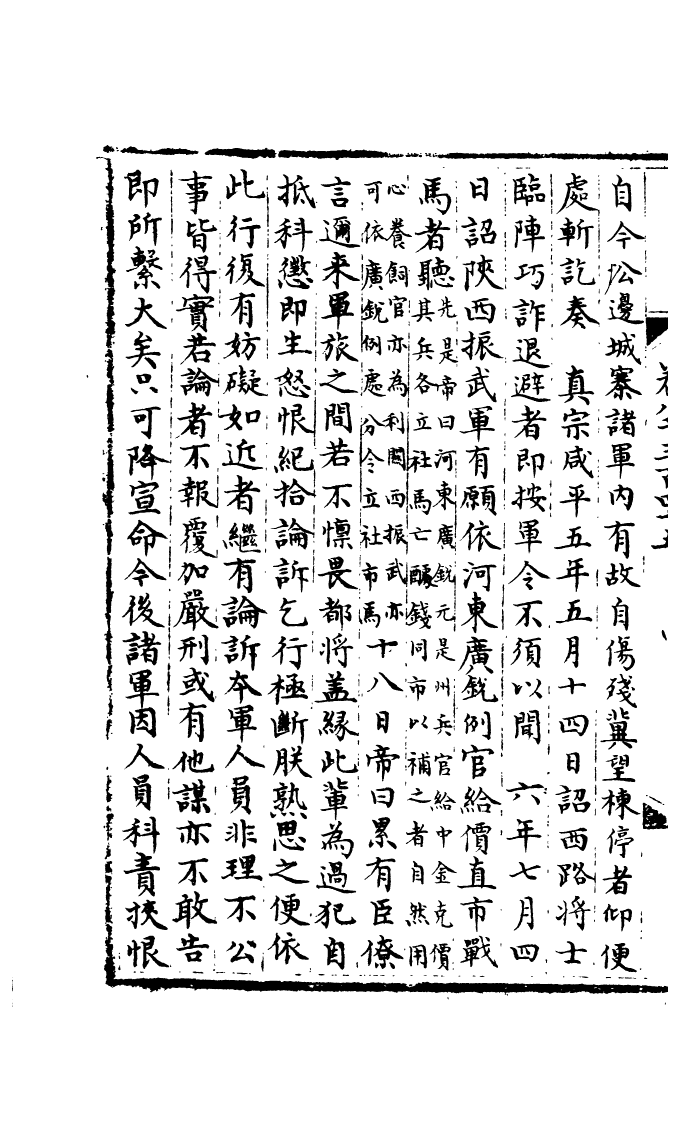 自今㳂邊城寨諸軍內有故自傷殘冀望揀停者仰便
處斬訖奏　真宗咸平五年五月十四日詔西路將士
臨陣巧詐退避者即按軍令不須以聞　六年七月四
日詔陝西振武軍有願依河東廣銳例官給價直市戰
馬者聽先是帝曰河東廣銳元是州兵官給中金克價
其兵各立社馬亡醵錢同市以補之者自然用
心養飼官亦為利關西振武亦
可依廣銳例處分令立社市馬十八日帝曰累有臣僚
言邇來軍旅之間若不懍畏都將盖緣此輩為過犯自
抵科懲即生怒恨紀拾論訴乞行極斷朕熟思之便依
此行復有妨礙如近者繼有論訴夲軍人員非理不公
事皆得實若論者不報覆加嚴刑或有他謀亦不敢告
即所繫大矣只可降宣命令後諸軍因人員科責挾恨